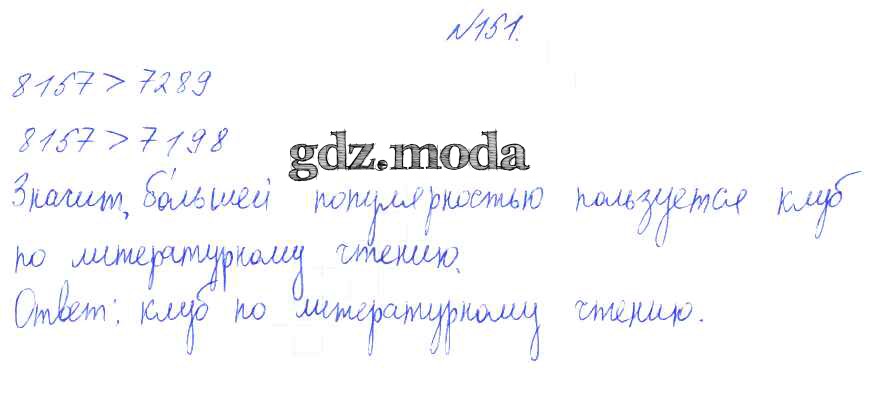 №151.
8157 > 7289
8157 > 7198
gdz.moda
Значит, бо́льшей популярностью пользуется клуб
по литературному чтению.
Ответ: клуб по литературному чтению.